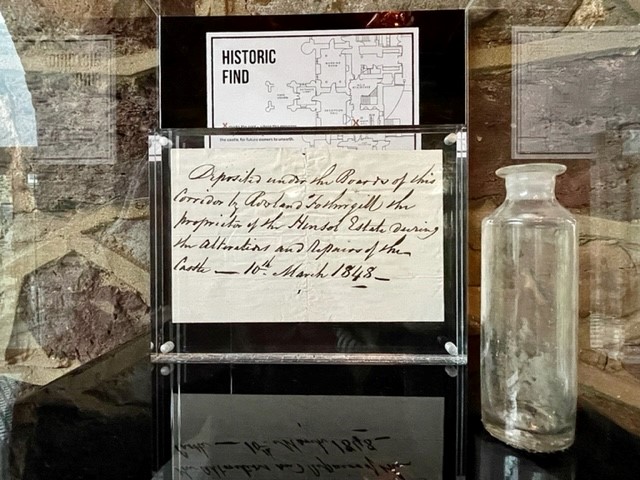 HISTORIC
FIND
the castle, for future owners to unearth.
Deposited under the Boards of this
Corridor by Rowland Fothergill the
proprietor of the Hensol Estate during
the Alterations and Repairs of the
Castle — 10th March 1848 —